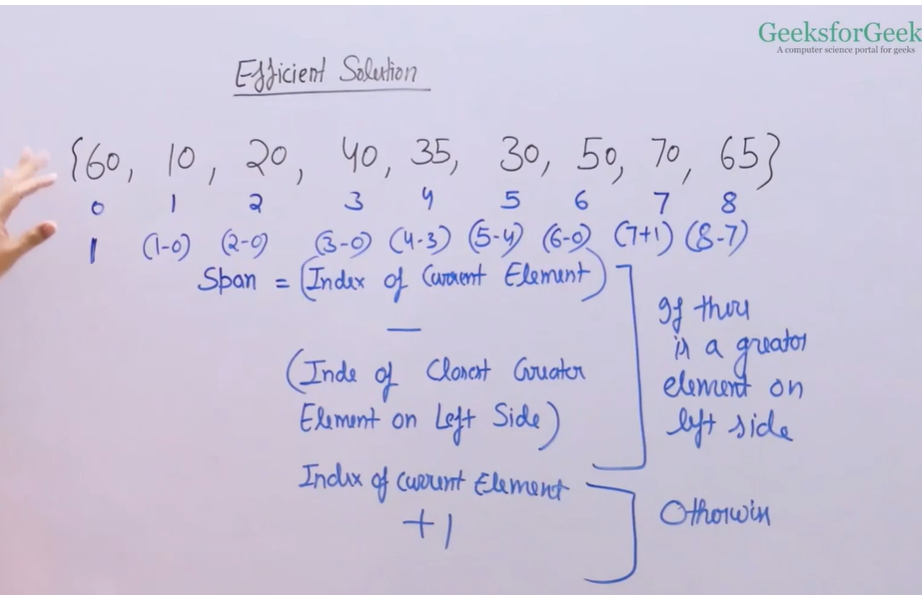 GeeksforGeek
A computer science portal for geeks
Efficient Solution
{60, 10, 20, 40, 35, 30, 50, 70, 65}
0 1 2 3 4 5 6 7 8
1 (1-0) (2-0) (3-0) (4-3) (5-4) (6-0) (7+1) (8-7)
Span = (Index of Current Element)
—
(Inde of Closest Greater
Element on Left Side)
If there
is a greater
element on
left side
Index of Current Element
+1
Otherwise